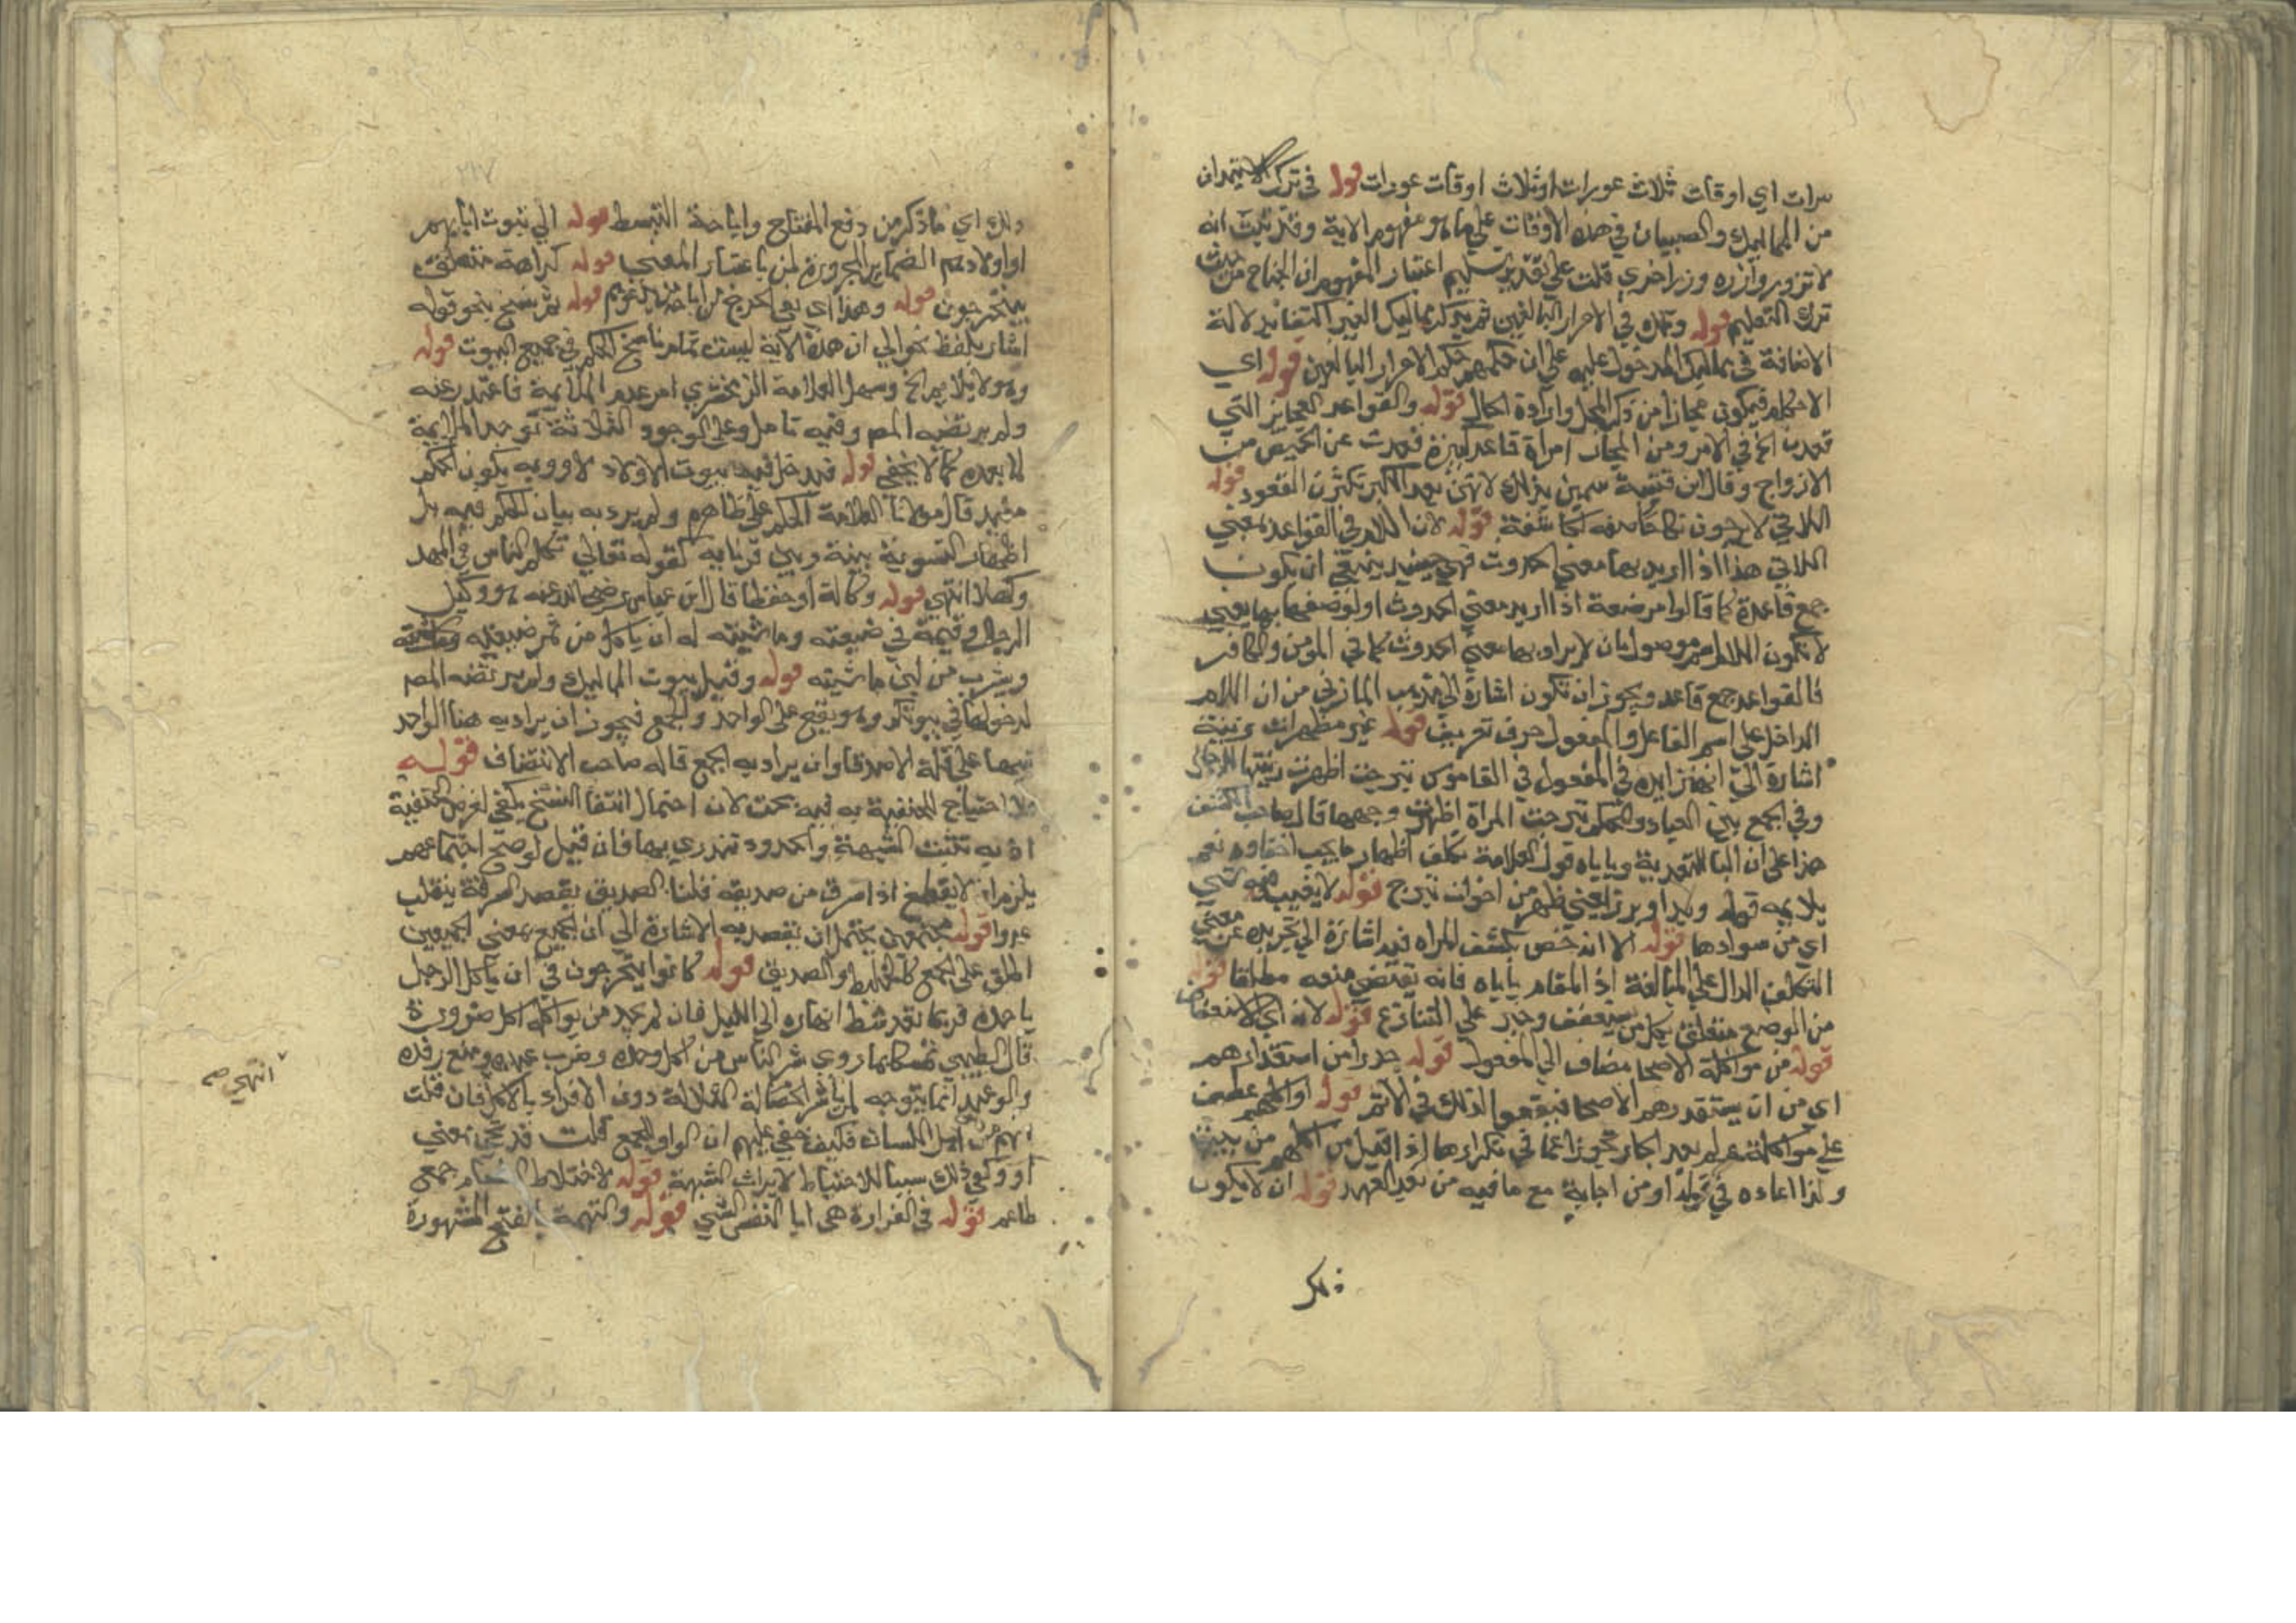 مرات اي اوقات ثلاث عورات او ثلاث اوقات عورات قوله في ترك الاستيذان
من المماليك والصبيان في هذه الاوقات على ما هو مفهوم الاية وقد ثبت انه
لا تزر وازرة وزر اخري قلت على تقدير تسليم اعتبار المفهوم ان الجناح من حيث
ترك التعليم قوله وتلك في الاحرار البالغين ثم يذكر مماليك الغير اكتفا بدلالة
الاضافة في مماليك المدخول عليه على ان حكمهم حكم الاحرار البالغين قوله اي
الاحكام فيكون مجازا من ذكر المحل وارادة الحال قوله والقواعد العجايز التي
قعدن الخ في الامر ومن المجاز امراة قاعد كبيرة قعدت عن الحيض من
الازواج وقال ابن قتيبة سمين بذلك لانهن بعد الكبر تكثرن القعود قوله
اللاتي لا يرجون نكاحا صفة كاشفة قوله لان اللام في القواعد بمعني
اللاتي هذا اذا اريد بها معني الحدوث فهي حينئذ ينبغي ان يكون
جمع قاعدة كما قالوا مرضعة اذا اريد معني الحدوث او لوصفها بها يعني
لا تكون اللام موصولة بان لا يراد بها معني الحدوث كما في المومن والكافر
فالقواعد جمع قاعد ويجوز ان تكون اشارة الى مذهب المازني من ان اللام
الداخل على اسم الفاعل والمفعول حرف تعريف قوله غير مظهرات زينة
اشارة الي زايدة في المفعول في القاموس تبرجت اظهرت زينتها للرجال
وفي الجمع بين العباد والمحكم تبرجت المراة اظهرت وجهها قال صاحب الكشف
هذا على ان البا للتعدية وياباه قول العلامة تكلف اظهار ما يجب اخفاوه نعم
يلايمه قوله وبدا وبرز بمعني ظهر من اخوات تبرج قوله لا يغيب منه شي
اي من سوادها قوله الا انه خص بكشف المراه فيه اشارة الى تجريده عن معني
التكلف الدال على المبالغة اذ المقام ياباه فانه يقتضي منعه مطلقا قوله
من الوضع متعلق بكل من يستعفف وخير على التنازع قوله لانه اي الاستعفاف
قوله من مواكلة الاصحا مضاف الي المفعول قوله حذرا من استقذارهم
اي من ان يستقذرهم الاصحا فيقعوا لذلك في الاثم قوله او اكلهم عطف
على مواكلة
ولذا اعاده في قوله او من اجابة مع ما فيه من بعد العهد قوله ان لا يكون
ذلك
ذلك اي ما ذكر من دفع المفتاح واباحة التبسط قوله الي بيوت ابايهم
او اولادهم الضماير المجرورة لمن باعتبار المعني قوله كراهة متعلق
بيتحرجون قوله وهذا اي نفي الحرج قوله ثم نسخ بنحو قوله
اشار بلفظ نحو الي ان هذه الاية ليست تمام ناسخ الحكم في جميع البيوت قوله
وهو لا يلايم الخ وسهل العلامة الزمخشري امر عدم الملايمة فاعتذر عنه
ولم يرتضه المص وفيه تامل وعلى الوجوه الثلاثة توجد الملايمة
لما بعده كما لا يخفي قوله فيدخل فيه بيوت الاولاد
قال مولانا العلامة الحكم على ظاهره ولم يرد به بيان الحكم فيه بل
اظهار التسوية بينه وبين قرنايه كقوله تعالي تكلم الناس في المهد
وكهلا انتهي قوله وكالة او حفظا قال ابن عباس رضي الله عنه هو وكيل
الرجل وقيمه في ضيعته وماشيته له ان ياكل من ثمر ضيعته
ويشرب من لبن ماشيته قوله وقيل بيوت المماليك ولم يرتضه المص
لدخولها في بيوتكم وهو يقع على الواحد والجمع فيجوز ان يراد به هنا الواحد
تنبيها على قلة الاصدقا وان يراد به الجمع قاله صاحب الانتصاف قوله
فلا احتياج للحنفية به فيه بحث لان احتمال انتفا النسخ يكفي لغرض الحنفية
اذ به تثبت الشبهة والحدود تندري بها فان قيل لو صح اجتماعهم
يلزم ان لا يقطع اذا سرق من صديقه قلنا الصديق بقصد السرقة ينقلب
عدوا قوله مجتمعين يحتمل ان يقصد به الاشارة الى ان الجميع بمعني الجميعين
اطلق على الجمع كالخليط والصديق قوله كانوا يتحرجون في ان ياكل الرجل
وحده فربما نقد شط انهاره الى الليل فان لم يجد من يواكله اكل ضرورة
قال الطيبي تمسكا بما روي شر الناس من اكل وحده وضرب عبده ومنع رفده
والوعيد انما يتوجه لمن باشر الخصال الثلاثة دون الافراد بالاكل فان قلت
انهم من اهل اللسان فكيف خفي عليهم ان الواو للجمع قلت قد تجي بمعني
او وكفي ذلك سببا للاحتياط لايراث الشبهة قوله لاختلاط الطعام جمع
طاعم قوله في القزازة هي ابا النفس الشي قوله والنهمة بالفتح المشهورة
انتهي صح